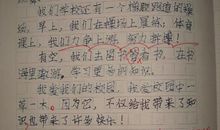 我们学校还有一个橡胶跑道的操
场，早上，我们在操场上晨练，体育
课上，我们力争上游，努力拼搏！
有空，我们去图书馆看书，在书
海里遨游，学里里面的知识。
我爱我们的校园，我爱校园中一
草一木，因为它，不仅给我带来了知
识也带来了许多快乐！